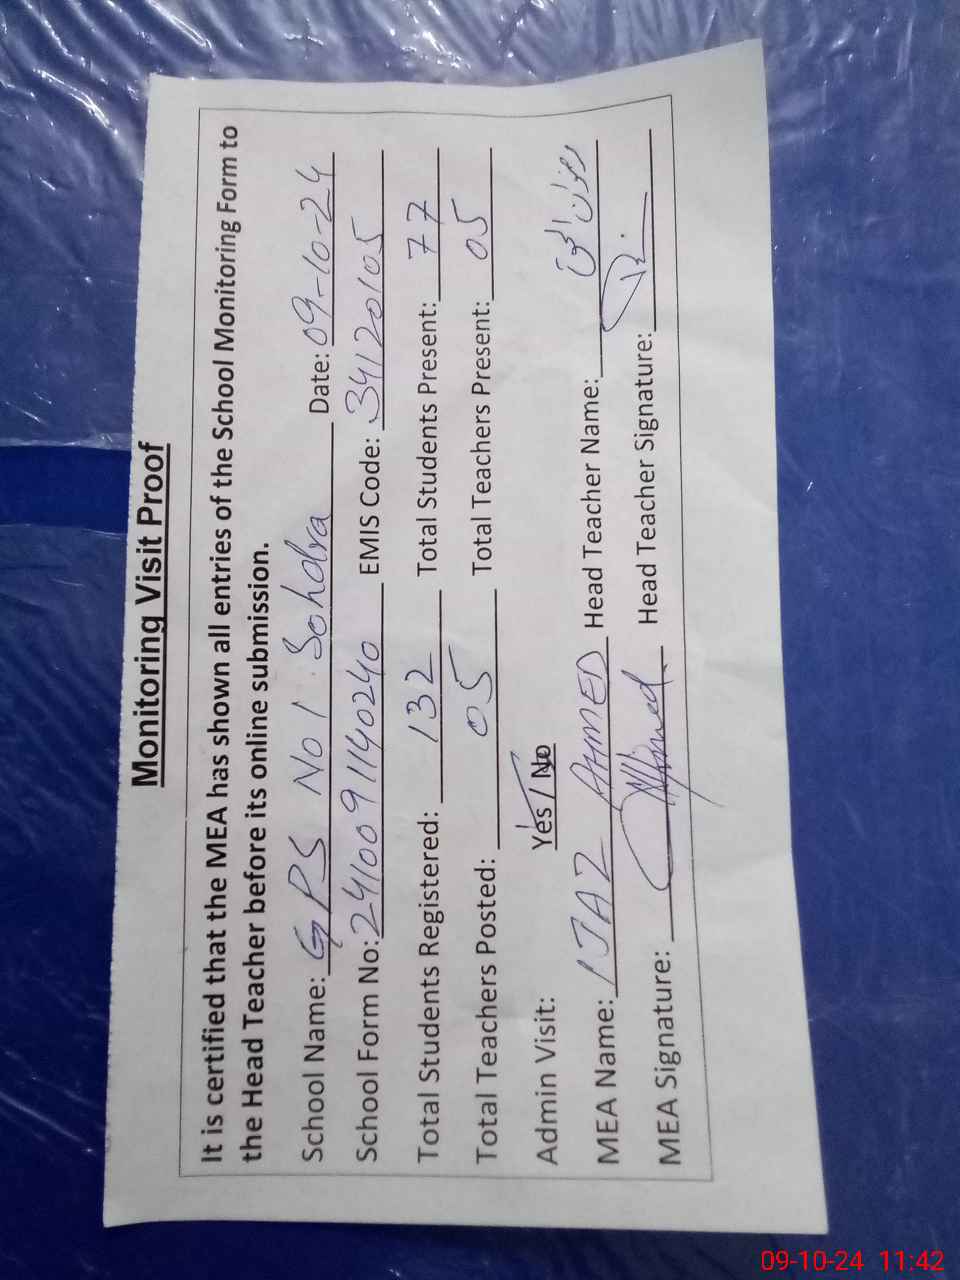 Monitoring Visit Proof
It is certified that the MEA has shown all entries of the School Monitoring Form to
the Head Teacher before its online submission.
School Name: GPS No 1 Sohdra Date: 09-10-24
School Form No: 2410091140240 EMIS Code: 34120105
Total Students Registered: 132 Total Students Present: 77
Total Teachers Posted: 05 Total Teachers Present: 05
Admin Visit: Yes / No
MEA Name: IJAZ AHMED Head Teacher Name:
MEA Signature: Head Teacher Signature:
09-10-24 11:42